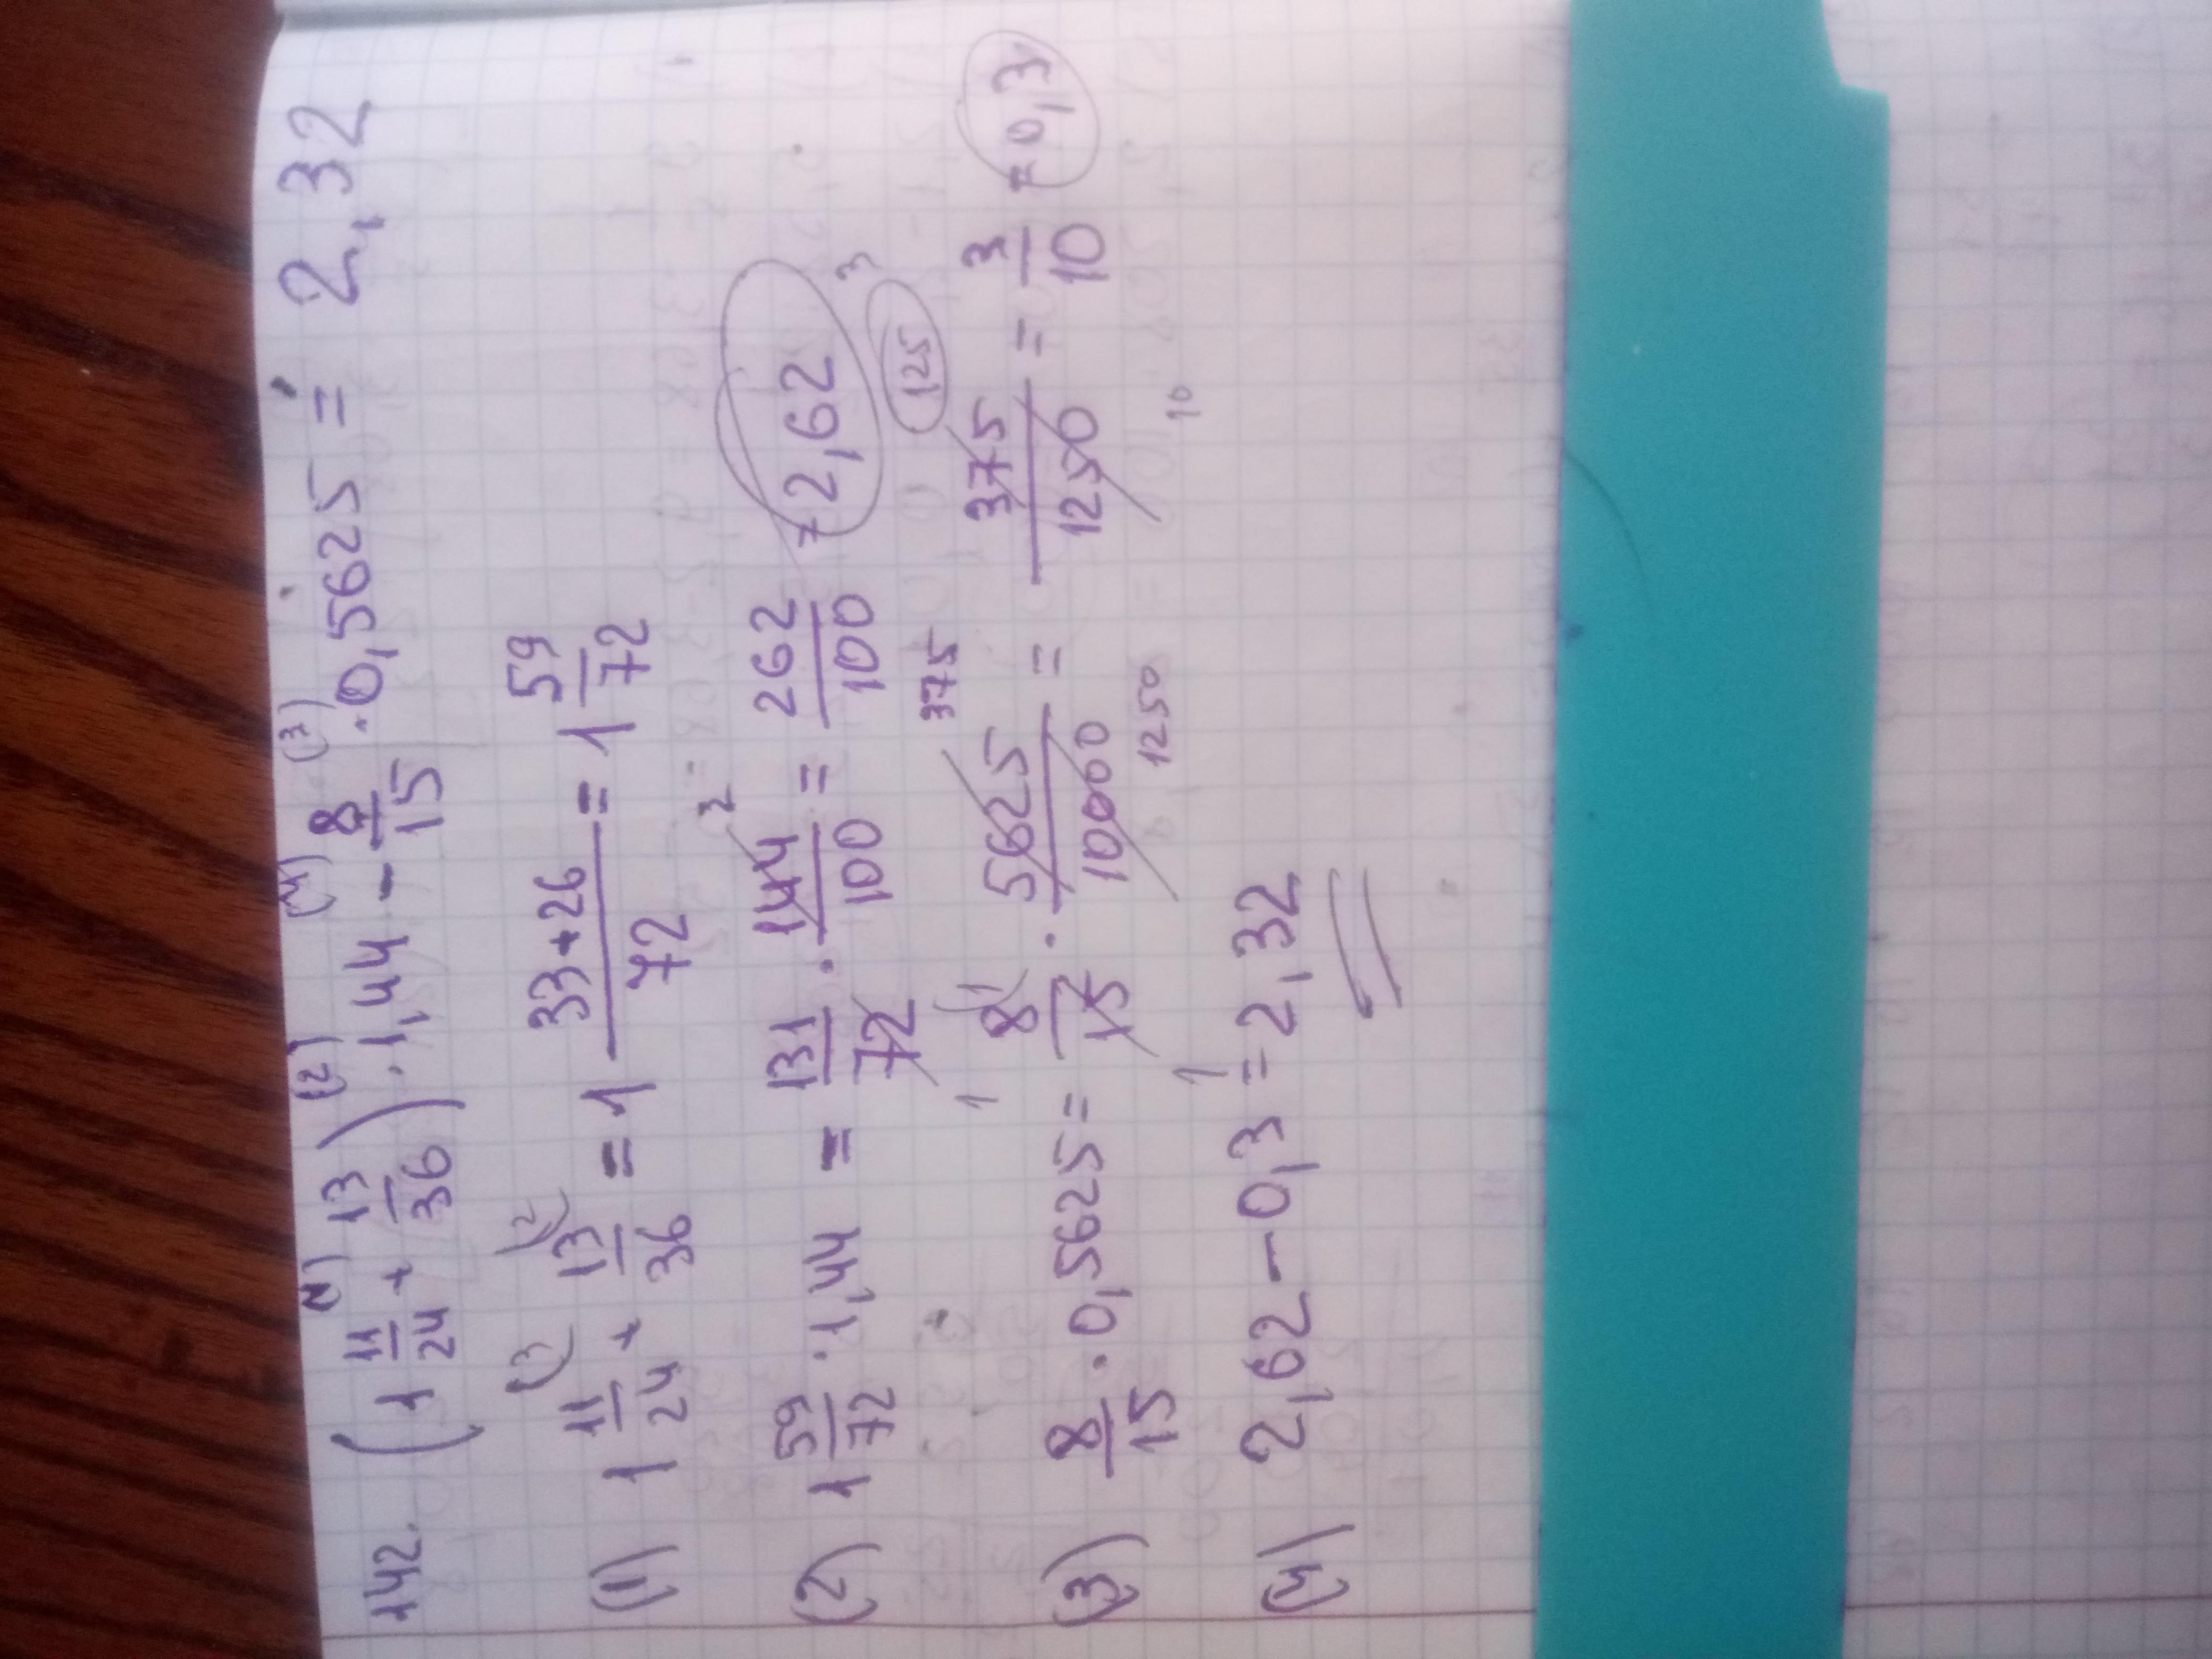 142. (1 11/24 + 13/36) · 1,44 - 8/15 · 0,5625 = 2,32
(1) 1 11/24 + 13/36 = 1 33+26/72 = 1 59/72
(2) 1 59/72 · 1,44 = 131/72 · 144/100 = 262/100 = 2,62
(3) 8/15 · 0,5625 = 8/15 · 5625/10000 = 375/1250 = 3/10 = 0,3
(4) 2,62 - 0,3 = 2,32